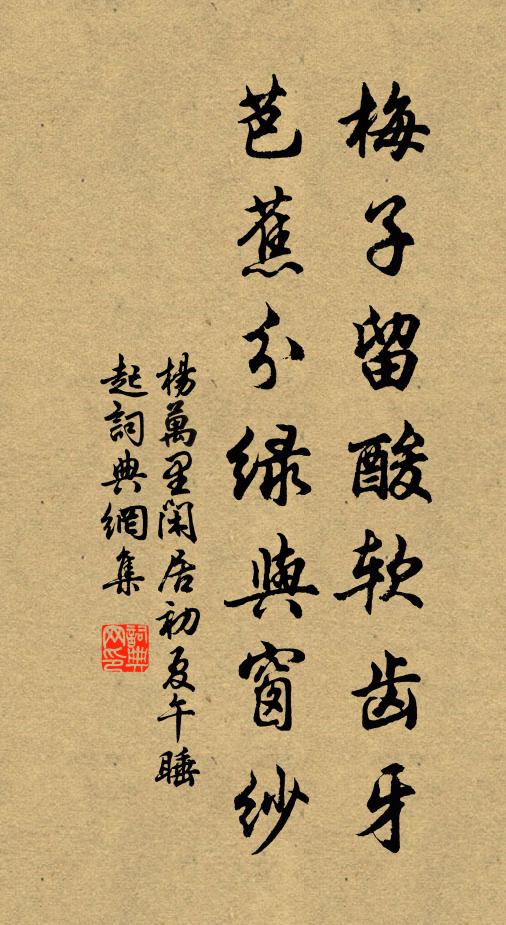 梅子留酸软齿牙
芭蕉分绿與窗纱
楊萬里閑居初夏午睡
起詞典網集
詞典
网印